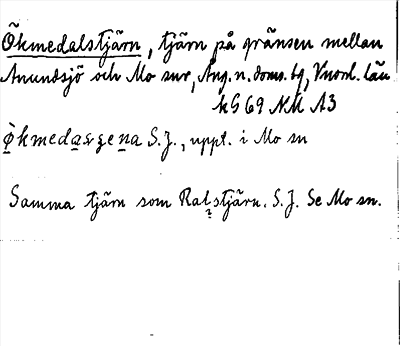 Ökmedalstjärn, tjärn på gränsen mellan
Anundsjö och Mo snr, Ång. n. doms. bg, Vnorrl. län
kG 69 NM A3
S.J., uppt. i Mo sn
Samma tjärn som Ralstjärn. S.J. Se Mo sn.